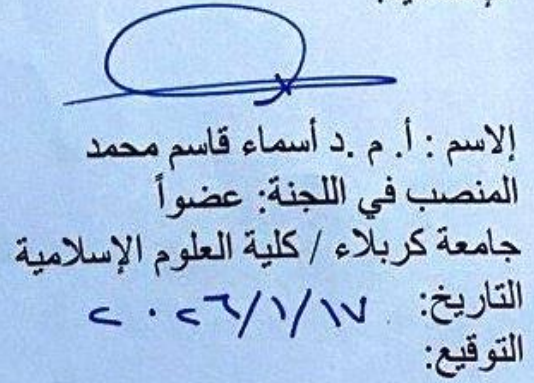 إلاسم : أ. م .د أسماء قاسم محمد
المنصب في اللجنة: عضواً
جامعة كربلاء / كلية العلوم الإسلامية
التاريخ: ٢٠٢٦/١/١٧
التوقيع: